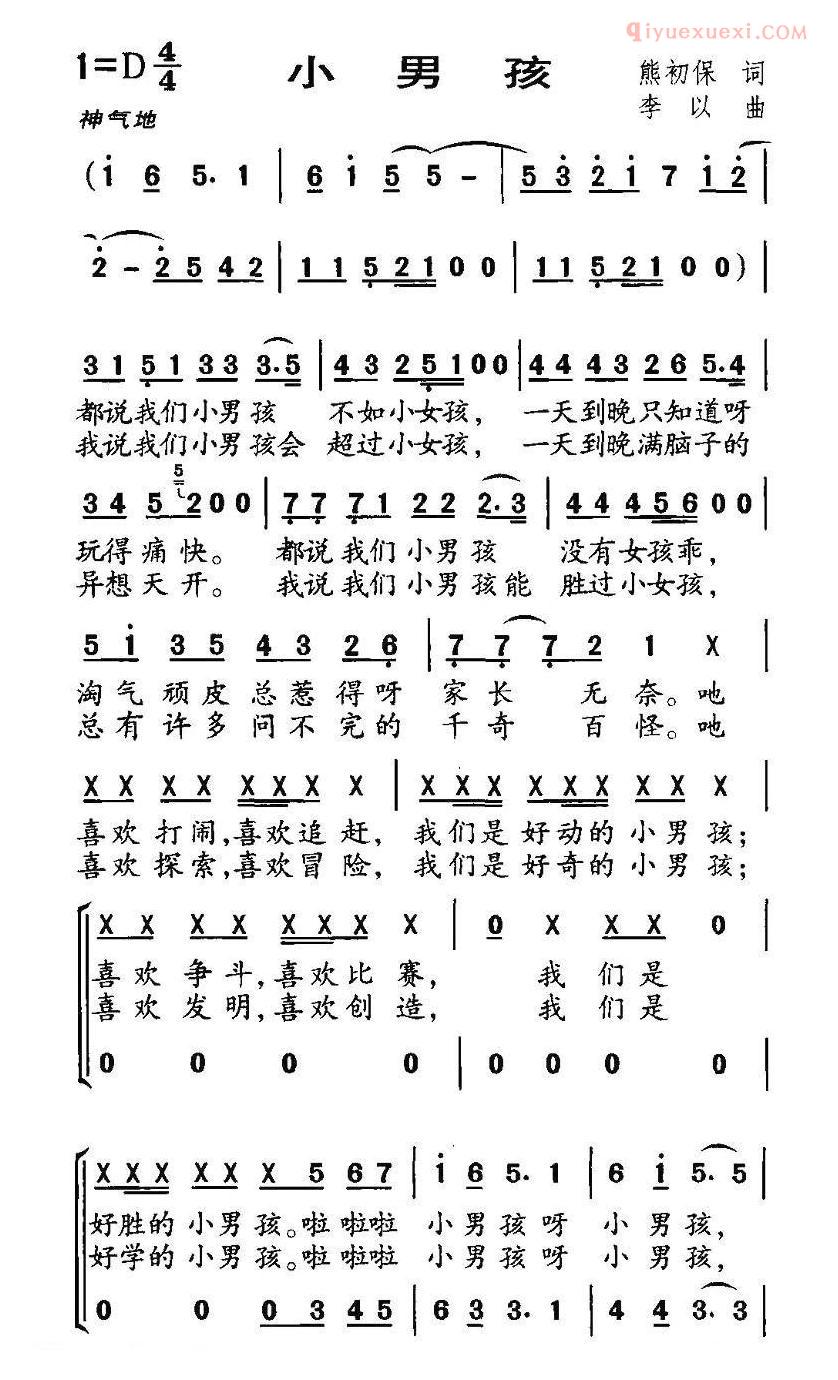 qiyuexuexi.com
1=D 4/4 小男孩 熊初保 词
神气地 李以 曲
(i 6 5. 1 | 6 i 5 5 - | 5 3 2 i 7 i 2 |
2 - 2 5 4 2 | 1 1 5 2 1 0 0 | 1 1 5 2 1 0 0) |
3 1 5 1 3 3 3. 5 | 4 3 2 5 1 0 0 | 4 4 4 3 2 6 5. 4 |
都说我们小男孩 不如小女孩， 一天到晚只知道呀
我说我们小男孩会 超过小女孩， 一天到晚满脑子的
5
3 4 5 2 0 0 | 7 7 7 1 2 2 2. 3 | 4 4 4 5 6 0 0 |
玩得痛快。 都说我们小男孩 没有女孩乖，
异想天开。 我说我们小男孩能 胜过小女孩，
5 i 3 5 4 3 2 6 | 7 7 7 2 1 X |
淘气顽皮总惹得呀 家长无奈。吔
总有许多问不完的 千奇百怪。吔
X X X X X X X X | X X X X X X X X |
喜欢打闹，喜欢追赶， 我们是好动的小男孩；
喜欢探索，喜欢冒险， 我们是好奇的小男孩；
X X X X X X X X | 0 X X X 0 |
喜欢争斗，喜欢比赛， 我们是
喜欢发明，喜欢创造， 我们是
0 0 0 0 | 0 0 0 0 |
X X X X X X 5 6 7 | i 6 5. 1 | 6 i 5. 5 |
好胜的小男孩。啦啦啦 小男孩呀 小男孩，
好学的小男孩。啦啦啦 小男孩呀 小男孩，
0 0 0 3 4 5 | 6 3 3. 1 | 4 4 3. 3 |